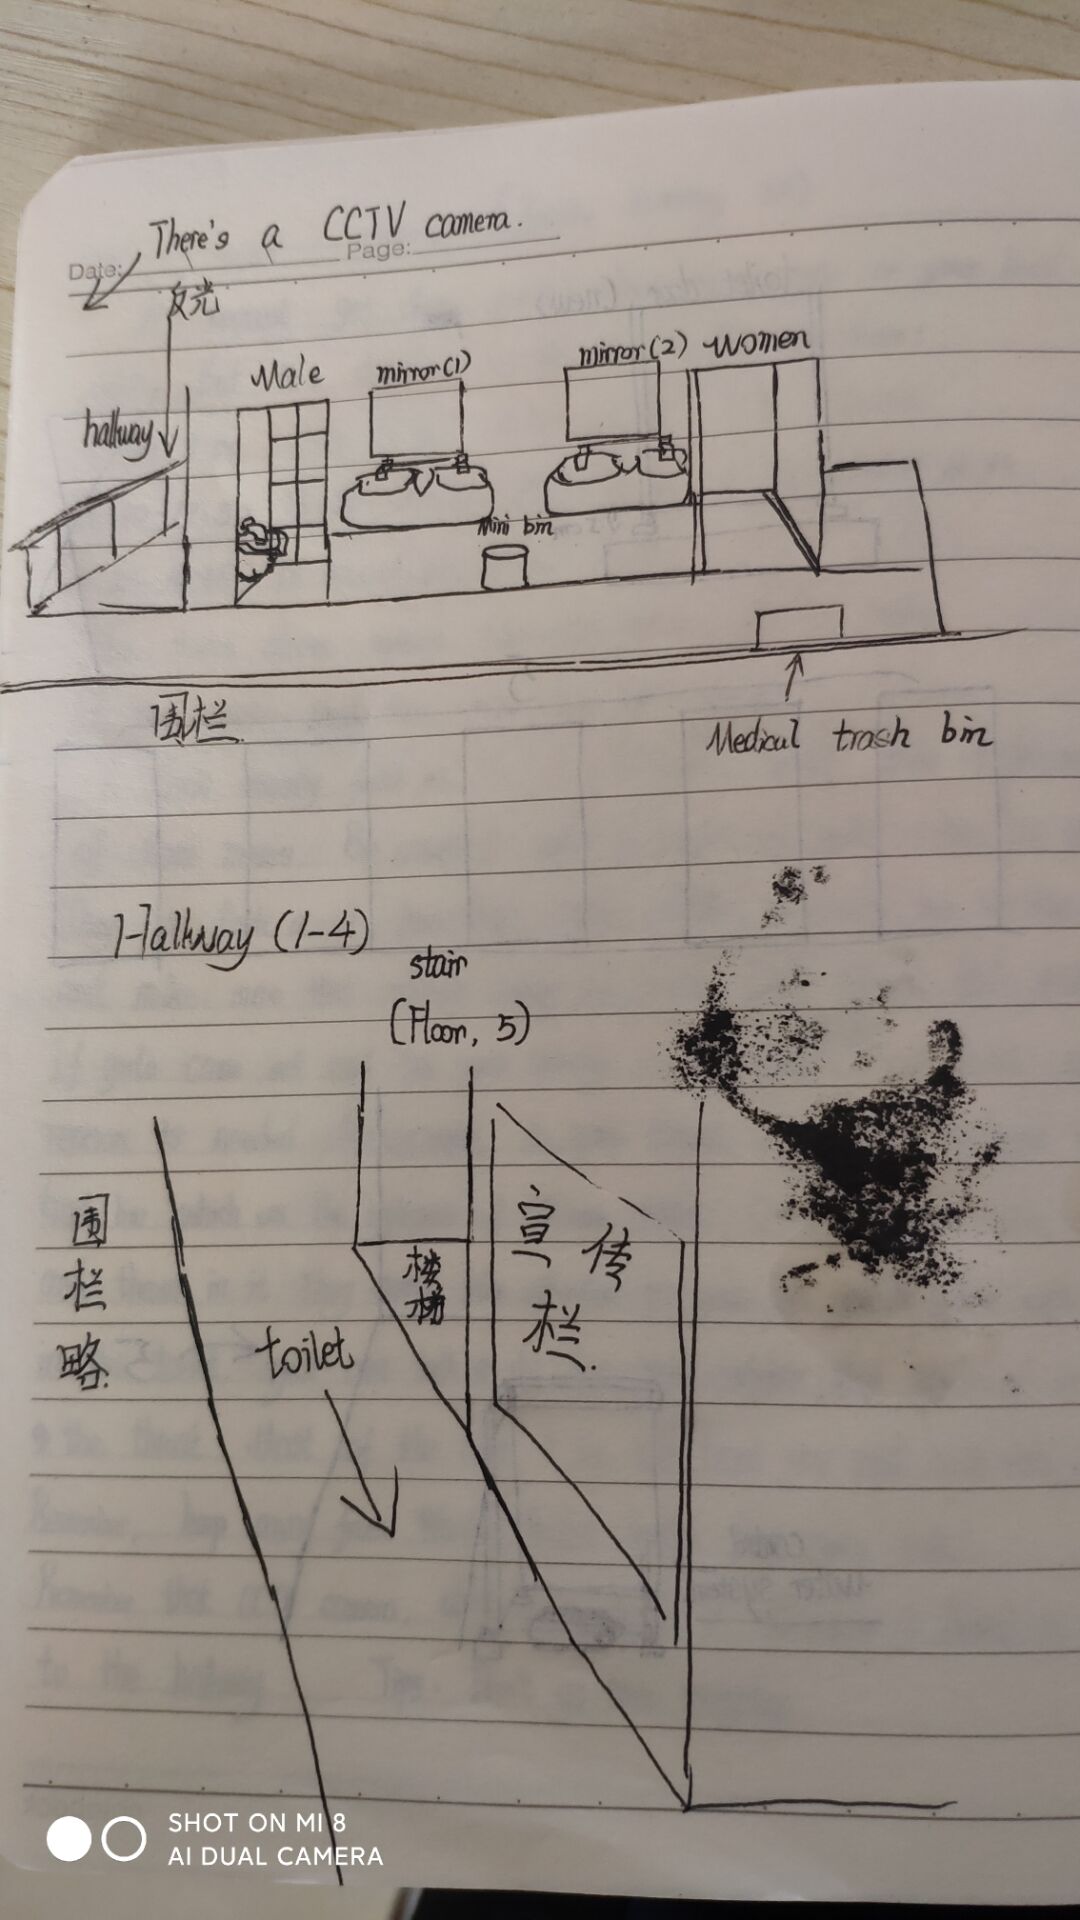 There's a CCTV camera.
Date:
Page:
反光
Male
mirror(1)
mirror(2)
Women
hallway
Mini bin
围栏
Medical trash bin
Hallway (1-4)
stair
(Floor, 5)
围栏略
楼梯
宣传栏
toilet
SHOT ON MI 8
AI DUAL CAMERA